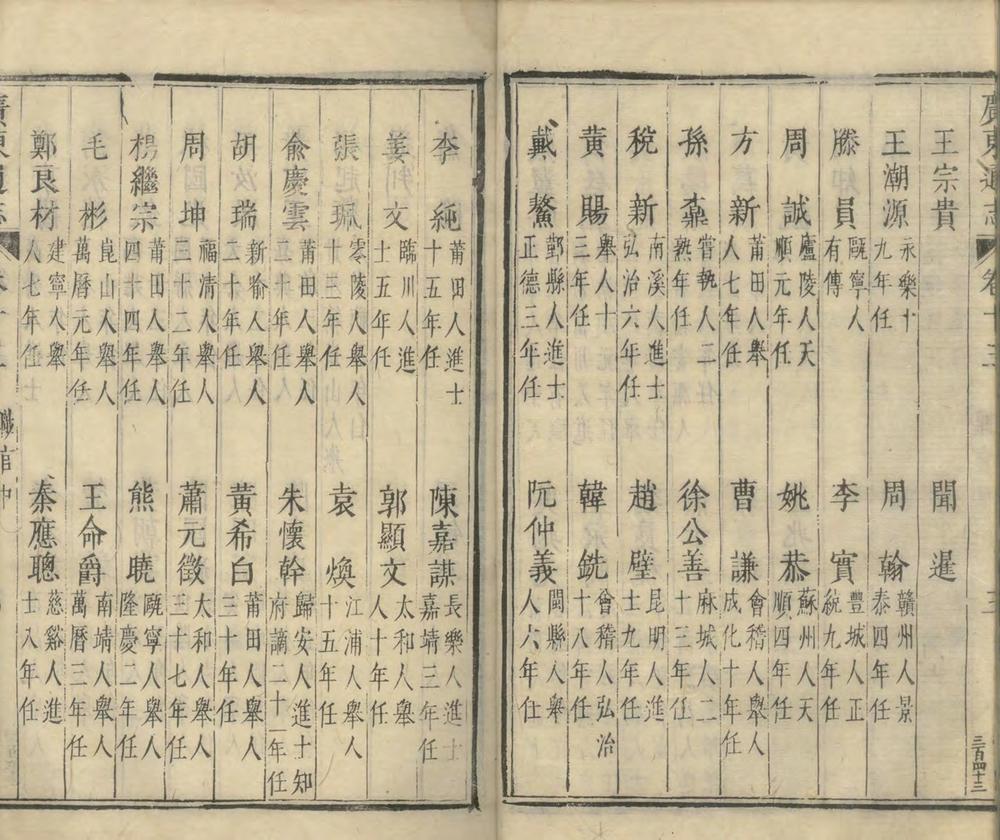 廣東通志 卷十三 三百四十三
王宗貴 聞暹
王潮源 永樂十九年任 周翰 贛州人景泰四年任
滕員 甌寧人有傳 李實 豐城人正統九年任
周誠 廬陵人天順元年任 姚恭 蘇州人天順四年任
方新 莆田人舉人七年任 曹謙 會稽人舉人成化十年任
孫鼒 常熟人二年任 徐公善 麻城人二十三年任
稅新 南溪人進士弘治六年任 趙璧 昆明人進士九年任
黃賜 舉人十三年任 韓銑 會稽人弘治十八年任
戴鰲 鄞縣人進士正德三年任 阮仲義 閩縣人舉人六年任
李純 莆田人進士十五年任 陳嘉謀 長樂人進士嘉靖三年任
姜判文 臨川人進士五年任 郭顯文 太和人舉人十年任
張起珮 零陵人舉人十三年任 袁煥 江浦人舉人十五年任
俞慶雲 莆田人舉人二十年任 朱懷幹 歸安人進士知府謫二十一年任
胡汝瑞 新喻人舉人二十年任 黃希白 莆田人舉人三十年任
周坤 福清人舉人三十二年任 蕭元徵 太和人舉人三十七年任
楊繼宗 莆田人舉人四十四年任 熊曉 甌寧人舉人隆慶二年任
毛彬 崑山人舉人萬曆元年任 王命爵 南靖人舉人萬曆三年任
鄭良材 建寧人舉人七年任 秦應聰 慈谿人進士八年任
廣東通志 職官